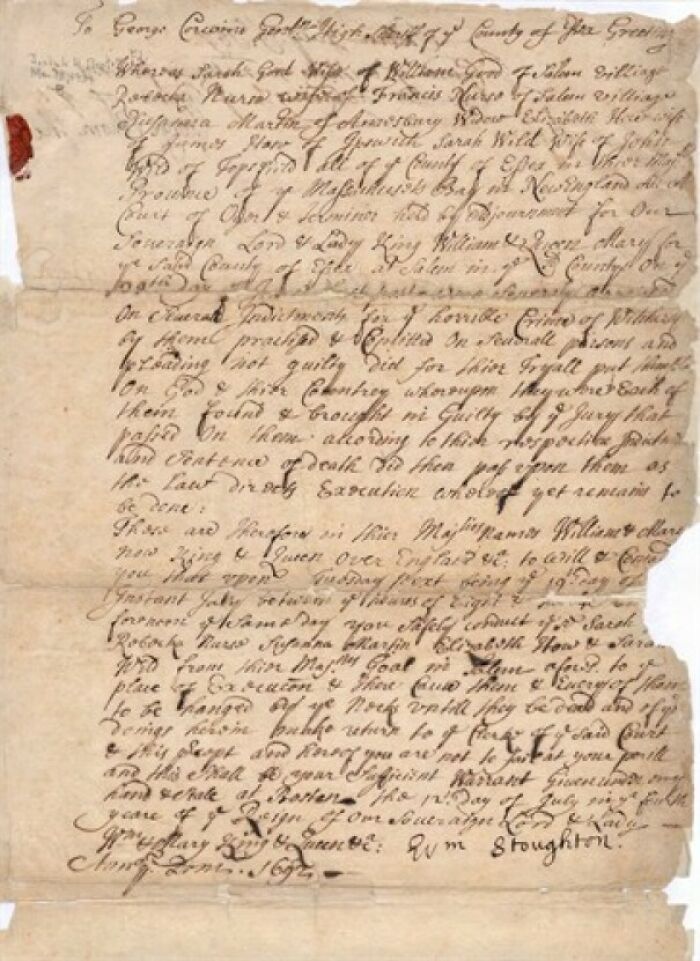 To George Corwine Gentlm High Sheriff of ye County of Essex Greeting
Whereas Sarah Good Wife of William Good of Salem Village
Rebecka Nurse wife of Francis Nurse of Salem Village
Susanna Martin of Amesbury Widow Elizabeth How wife
of James How of Ipswich Sarah Wild Wife of John
Wild of Topsfield all of ye County of Essex in thier Majts
Province of ye Massachusets Bay in New England
Court of Oyer & Terminer held by adjournment for Our
Soveraign Lord & Lady King William & Queen Mary for
ye said County of Essex at Salem in ye sd County on ye
day of were severaly arraigned
On Several Indictments for ye horrible Crime of Witchcraft
by them practised & Comitted On Severall persons and
pleading not guilty did for thier Tryall put themselves
On God & thier Countrey whereupon they were Each of
them found & brought in Guilty by ye Jury that
passed On them according to thier respective Indictments
and Sentence of death did then pass upon them as
the Law directs Execution whereof yet remains to
be done:
These are therefore in thier Majties names William & Mary
now King & Queen over England &c: to will & Comand
you that upon Tuesday next being ye 19th day of
Instant July between ye houres of Eight &
forenoon ye same day you safely conduct ye sd Sarah
Rebecka Nurse Susanna Martin Elizabeth How & Sarah
Wild from thier Majties Goal in Salem aforesd to ye
place of Execution & there Cause them & Every of them
to be hanged by ye Necks untill they be dead and of ye
doings herein make return to ye Clerke of ye said Court
& this precept and hereof you are not to fail at your perill
and this Shall be your Sufficient Warrant Given under my
hand & seale at Boston the 12th day of July in ye fourth
yeare of ye Reign of Our Soveraign Lord & Lady
Wm & Mary King & Queen &c: Wm Stoughton
Annoq Dom. 1692